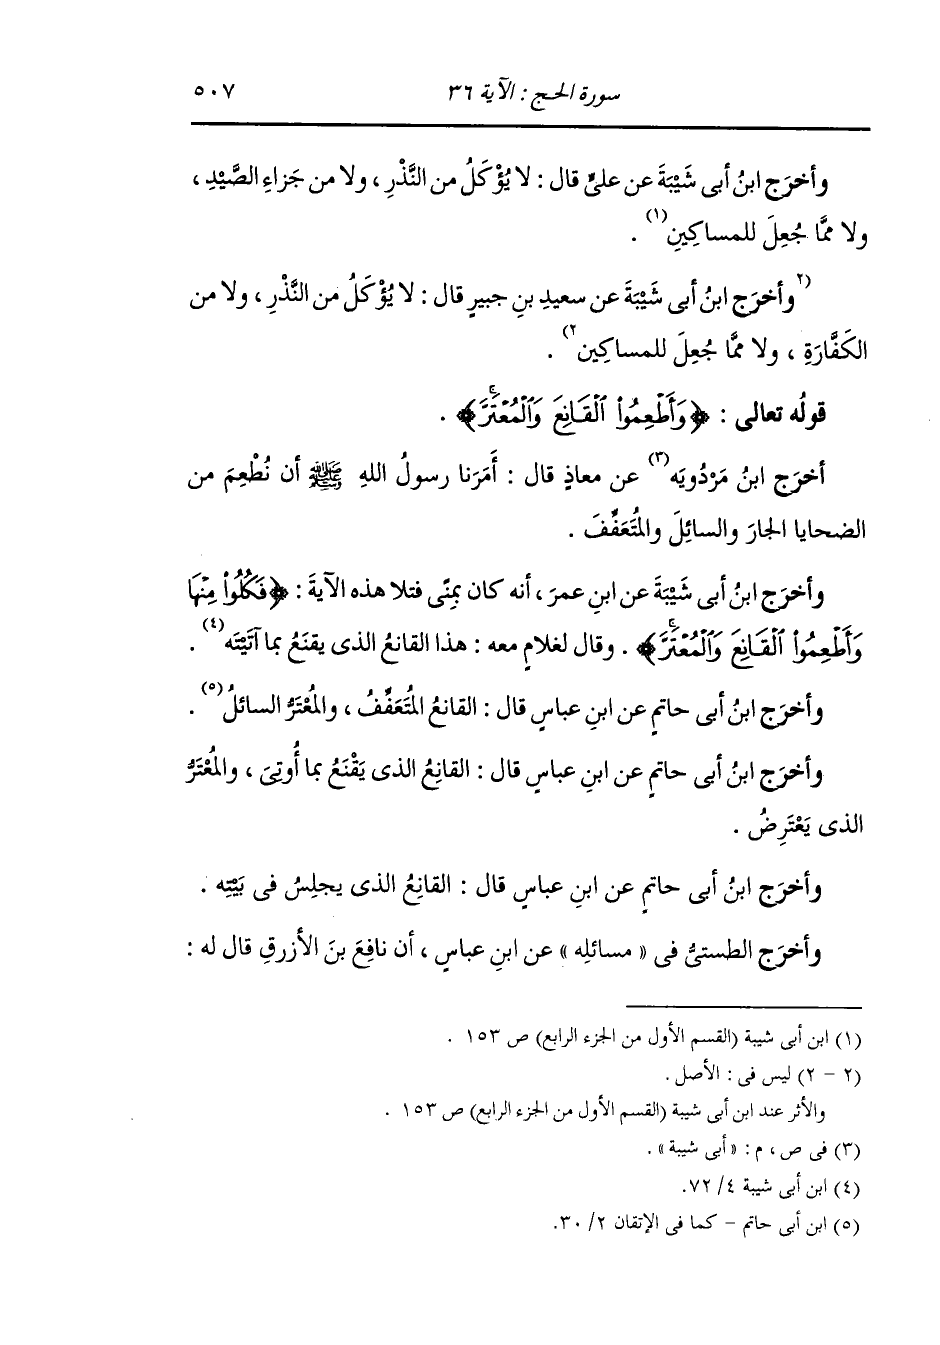 سورة الحج : الآية ٣٦ ٥٠٧
وأخرَج ابنُ أبى شَيْبَةَ عن علىٍّ قال : لا يُؤْكَلُ من النَّذْرِ ، ولا من جَزاءِ الصَّيْدِ ،
ولا ممَّا جُعِلَ للمساكِينِ(١) .
(٢وأخرَج ابنُ أبى شَيْبَةَ عن سعيدِ بنِ جبيرٍ قال : لا يُؤْكَلُ من النَّذْرِ ، ولا من
الكَفَّارَةِ ، ولا ممَّا جُعِلَ للمساكِين٢) .
قولُه تعالى : ﴿وَأَطْعِمُوا۟ ٱلْقَانِعَ وَٱلْمُعْتَرَّۚ﴾ .
أخرَج ابنُ مَرْدُويَه(٣) عن معاذٍ قال : أَمَرَنا رسولُ اللهِ ﷺ أن نُطْعِمَ من
الضحايا الجارَ والسائلَ والمُتَعَفِّفَ .
وأخرَج ابنُ أبى شَيْبَةَ عن ابنِ عمرَ ، أنه كان بمِنًى فتلا هذه الآيةَ : ﴿فَكُلُوا۟ مِنْهَا
وَأَطْعِمُوا۟ ٱلْقَانِعَ وَٱلْمُعْتَرَّۚ﴾ . وقال لغلامٍ معه : هذا القانعُ الذى يقنَعُ بما آتَيْتَه(٤) .
وأخرَج ابنُ أبى حاتمٍ عن ابنِ عباسٍ قال : القانعُ المُتَعَفِّفُ ، والمُعْتَرُّ السائلُ(٥) .
وأخرَج ابنُ أبى حاتمٍ عن ابنِ عباسٍ قال : القانِعُ الذى يَقْنَعُ بما أُوتِىَ ، والمُعْتَرُّ
الذى يَعْتَرِضُ .
وأخرَج ابنُ أبى حاتمٍ عن ابنِ عباسٍ قال : القانِعُ الذى يجلِسُ فى بَيْتِه .
وأخرَج الطستىُّ فى « مسائلِه » عن ابنِ عباسٍ ، أن نافِعَ بنَ الأزرقِ قال له :
(١) ابن أبى شيبة (القسم الأول من الجزء الرابع) ص ١٥٣ .
(٢ - ٢) ليس فى : الأصل .
والأثر عند ابن أبى شيبة (القسم الأول من الجزء الرابع) ص ١٥٣ .
(٣) فى ص ، م : « أبى شيبة » .
(٤) ابن أبى شيبة ٤/ ٧٢.
(٥) ابن أبى حاتم - كما فى الإتقان ٢/ ٣٠.